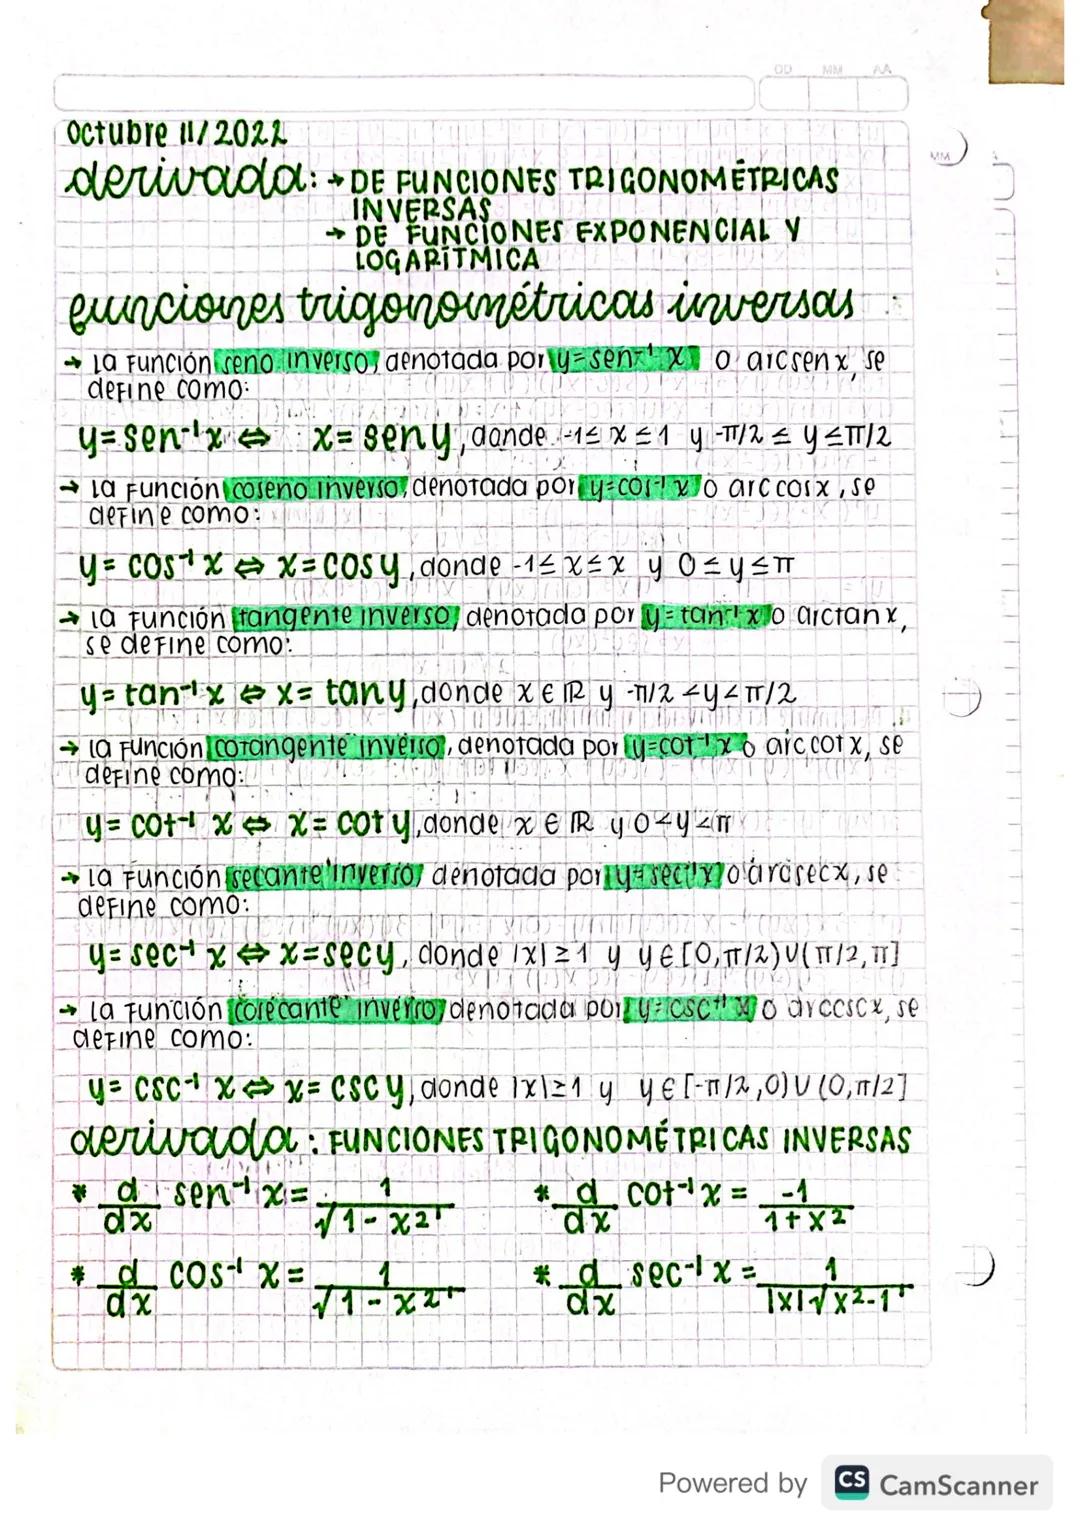 DD MM AA
MM
Octubre 11/2022
derivada: → DE FUNCIONES TRIGONOMÉTRICAS
INVERSAS
→ DE FUNCIONES EXPONENCIAL Y
LOGARÍTMICA
funciones trigonométricas inversas
→ La función seno inverso, denotada por y=sen⁻¹ x o arcsenx, se
define como:
y=sen⁻¹x ⇔ x=seny, donde -1≤x≤1 y -π/2≤y≤π/2
→ La función coseno inverso, denotada por y=cos⁻¹x o arccosx, se
define como:
y=cos⁻¹x ⇔ x=cosy, donde -1≤x≤x y 0≤y≤π
→ La función tangente inverso, denotada por y=tan⁻¹x o arctanx,
se define como:
y=tan⁻¹x ⇔ x=tany, donde x∈ℝ y -π/2<y<π/2
→ La función cotangente inverso, denotada por y=cot⁻¹x o arccotx, se
define como:
y=cot⁻¹ x ⇔ x=coty, donde x∈ℝ y 0<y<π
→ La función secante inverso, denotada por y=sec⁻¹x o arcsecx, se
define como:
y=sec⁻¹ x ⇔ x=secy, donde |x|≥1 y y∈[0,π/2)∪(π/2,π]
→ La función cosecante inverso, denotada por y=csc⁻¹x o arccscx, se
define como:
y=csc⁻¹ x ⇔ x=cscy, donde |x|≥1 y y∈[-π/2,0)∪(0,π/2]
derivada: FUNCIONES TRIGONOMÉTRICAS INVERSAS
* d/dx sen⁻¹x = 1/√1-x² * d/dx cot⁻¹x = -1/1+x²
* d/dx cos⁻¹x = 1/√1-x² * d/dx sec⁻¹x = 1/|x|√x²-1
Powered by CS CamScanner